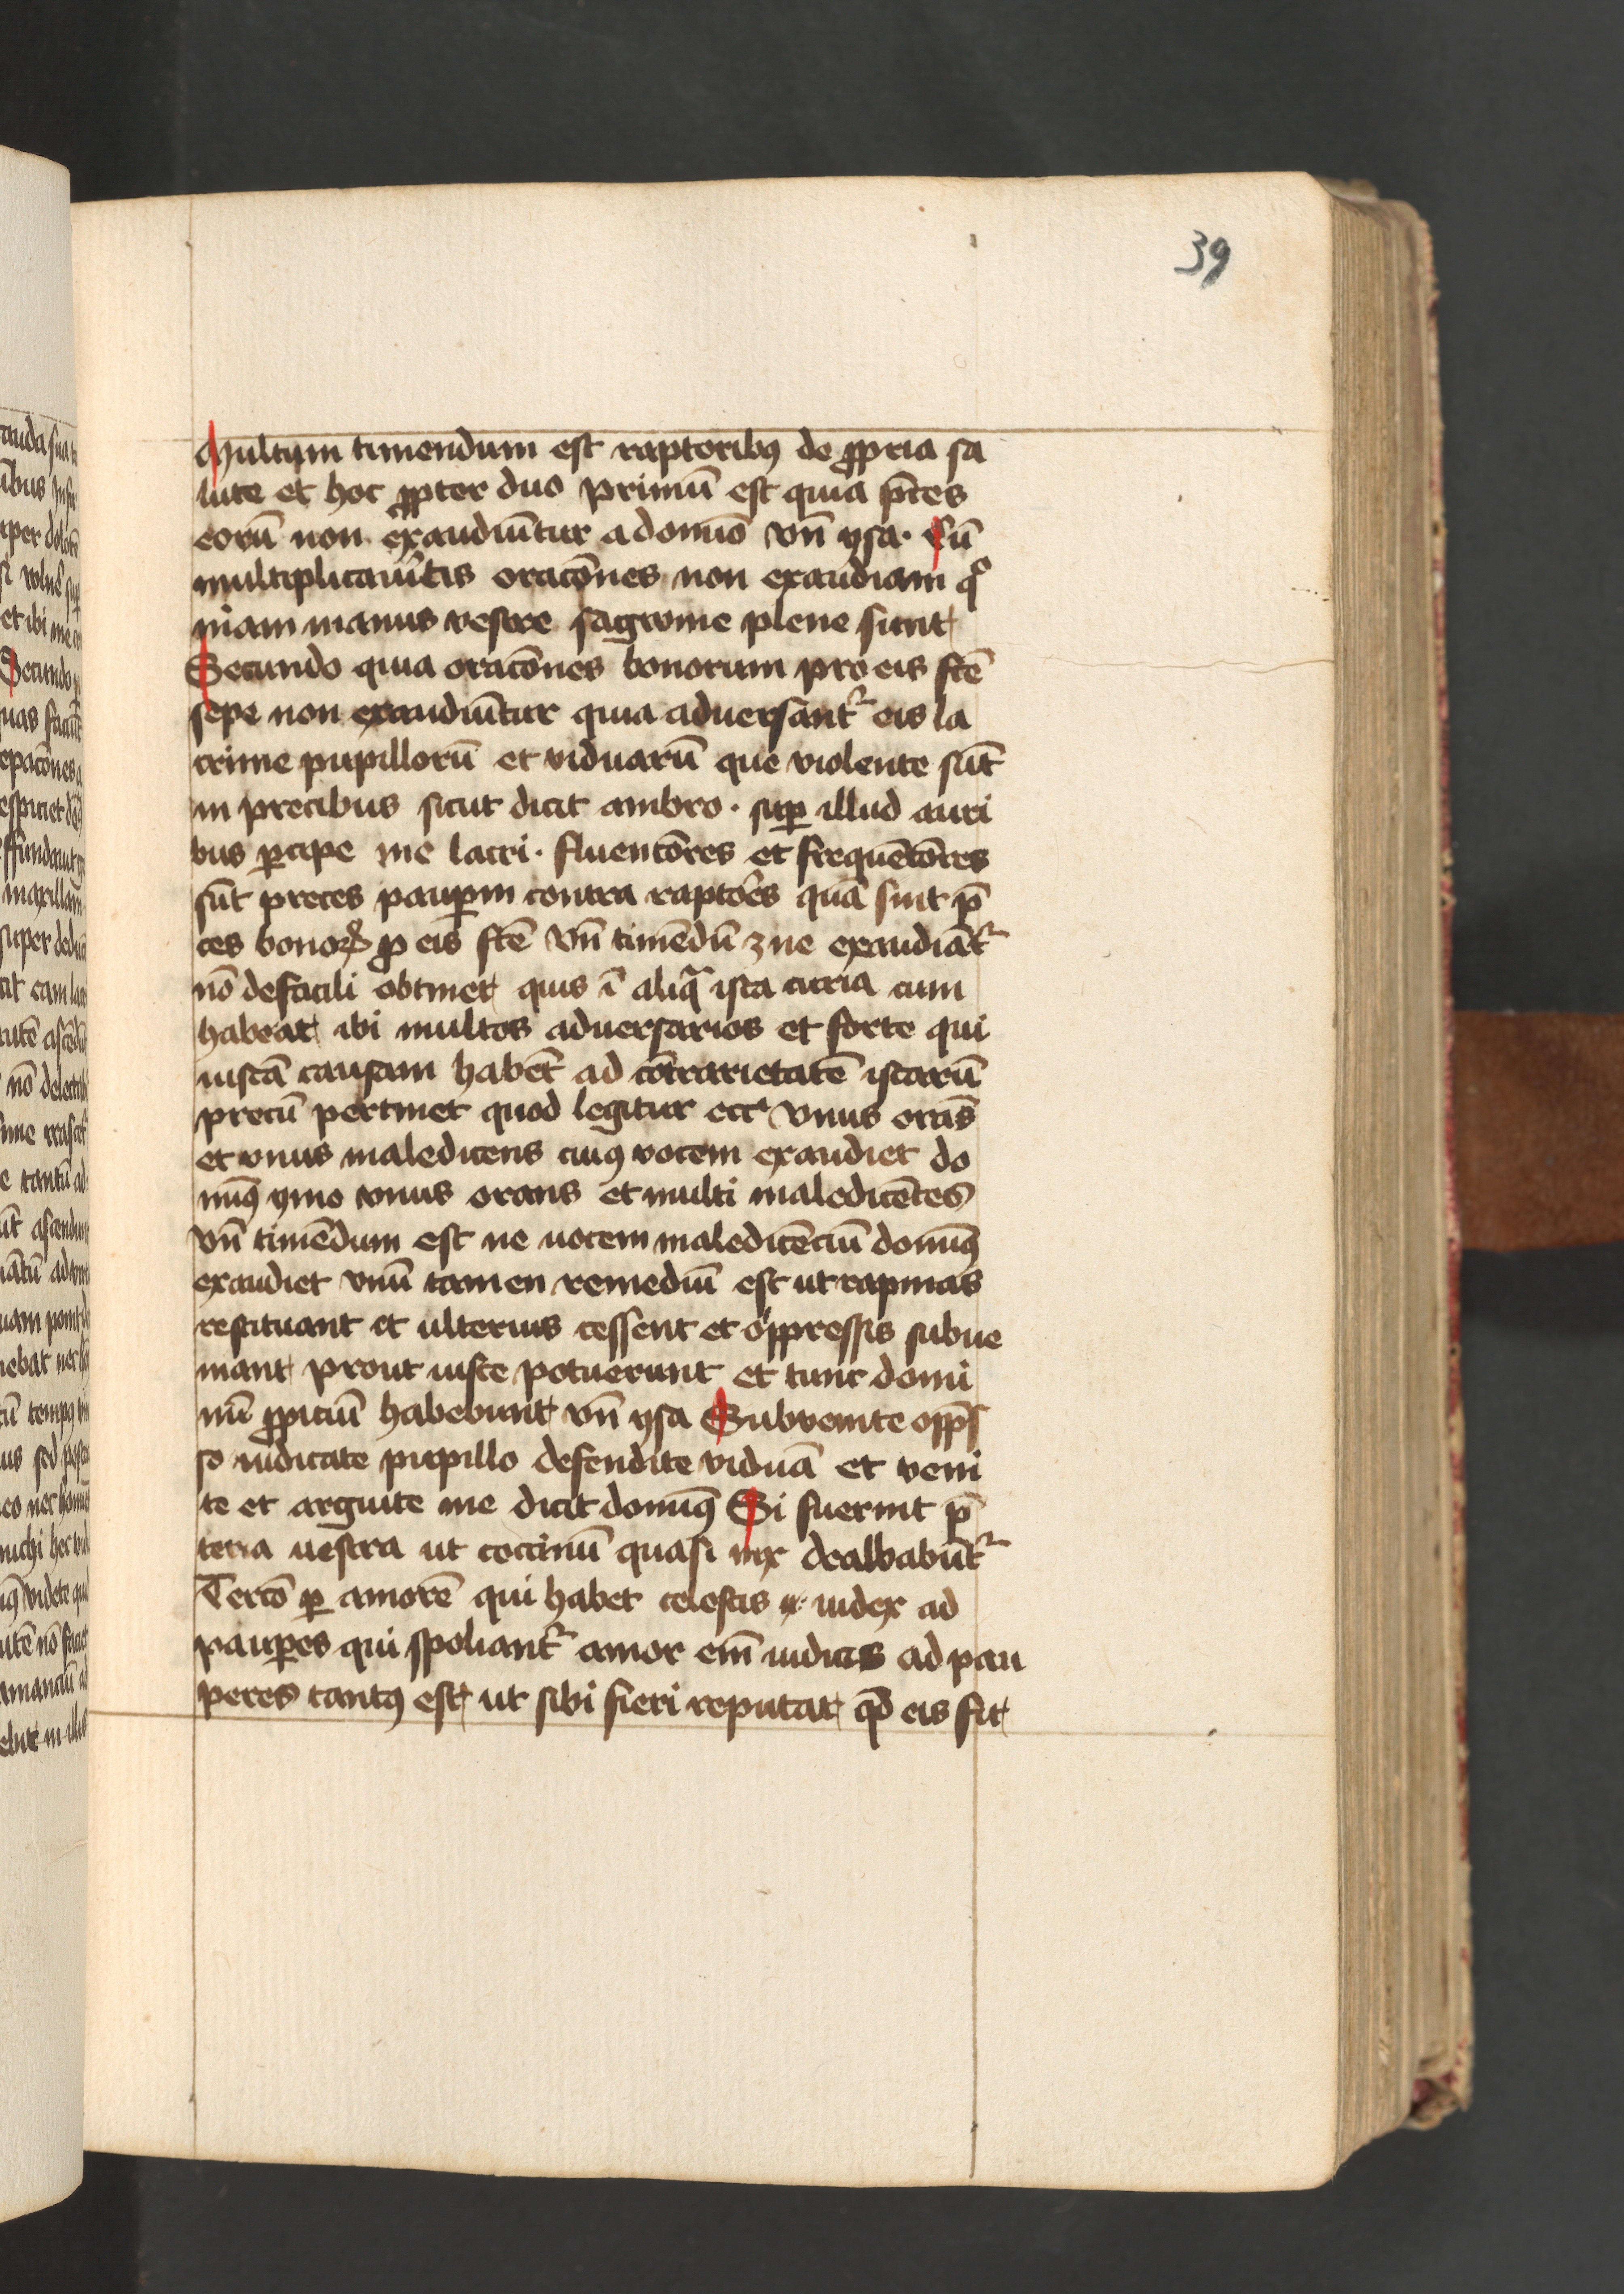 39
Multum timendum est raptoribꝯ de ꝓpria sa
lute et hoc ꝓpter duo primū est quia p̄ces
eorū non exaudiūtur a domīo vn̄ ysa· Cū
multiplicaūitis oracōnes non exaudiam qͦ
niam manus vestre sagwine plene sunt
Secundo quia oracōnes bonorum pro eis fc̄e
sepe non exaudiūtur quia aduersantᷣ eis la
crime pupillorū et viduarū que violente sūt
in precibus sicut dicit ambro· suꝑ illud auri
bus ꝑcipe me lacri· fluencōres et frequētōres
sūt preces pauꝑum contra raptōes quā sint p̄
ces bonoꝝ ꝓ eis fc̄e vn̄ timēdū ꝫ ne exaudiātᷣ
nō defacili obtinet quis ī aliqᷓ ista curia cum
habeat ibi multos aduersarios et forte qui
iustā causam habēt ad cōtrarietatē istarū
precū pertinet quod legitur ecc̄ vnus orās
et vnus maledicens cuiꝯ vocem exaudiet do
minꝯ ymo vnus orans et multi maledicētes
vn̄ timēdum est ne uocem maledicēciū dominꝯ
exaudiet vnū tamen remediū est ut rapinas
restituant et ulterius cessent et oppressis subue
niant prout iuste potuerunt et tunc domi
nū ꝓpiciū habebunt vn̄ ysa Subvenite opp̄s
so iudicate pupillo defendite viduā et veni
te et arguite me dicit dominꝯ Si fuerint p̄
teria uestra ut coccinū quasi nix dealbabūtᷣ
Tercō ꝑ amorē qui habet celestis iudex ad
pauꝑes qui spoliantᷣ amor em̄ iudicis ad pau
peres tantꝯ est ut sibi fieri reputat qd̄ eis fit